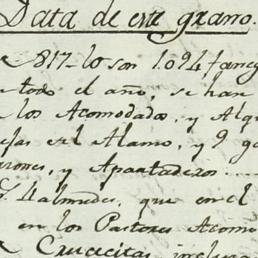 Data de este grano.
817 lo son 1094 faneg
todo el año, se han
los Acomodados, y Alq
el Alamo, y 9 g
y Apartaderos
4 almudes, que en el
en los Pastores Acomo
Crucecitas, inclusa